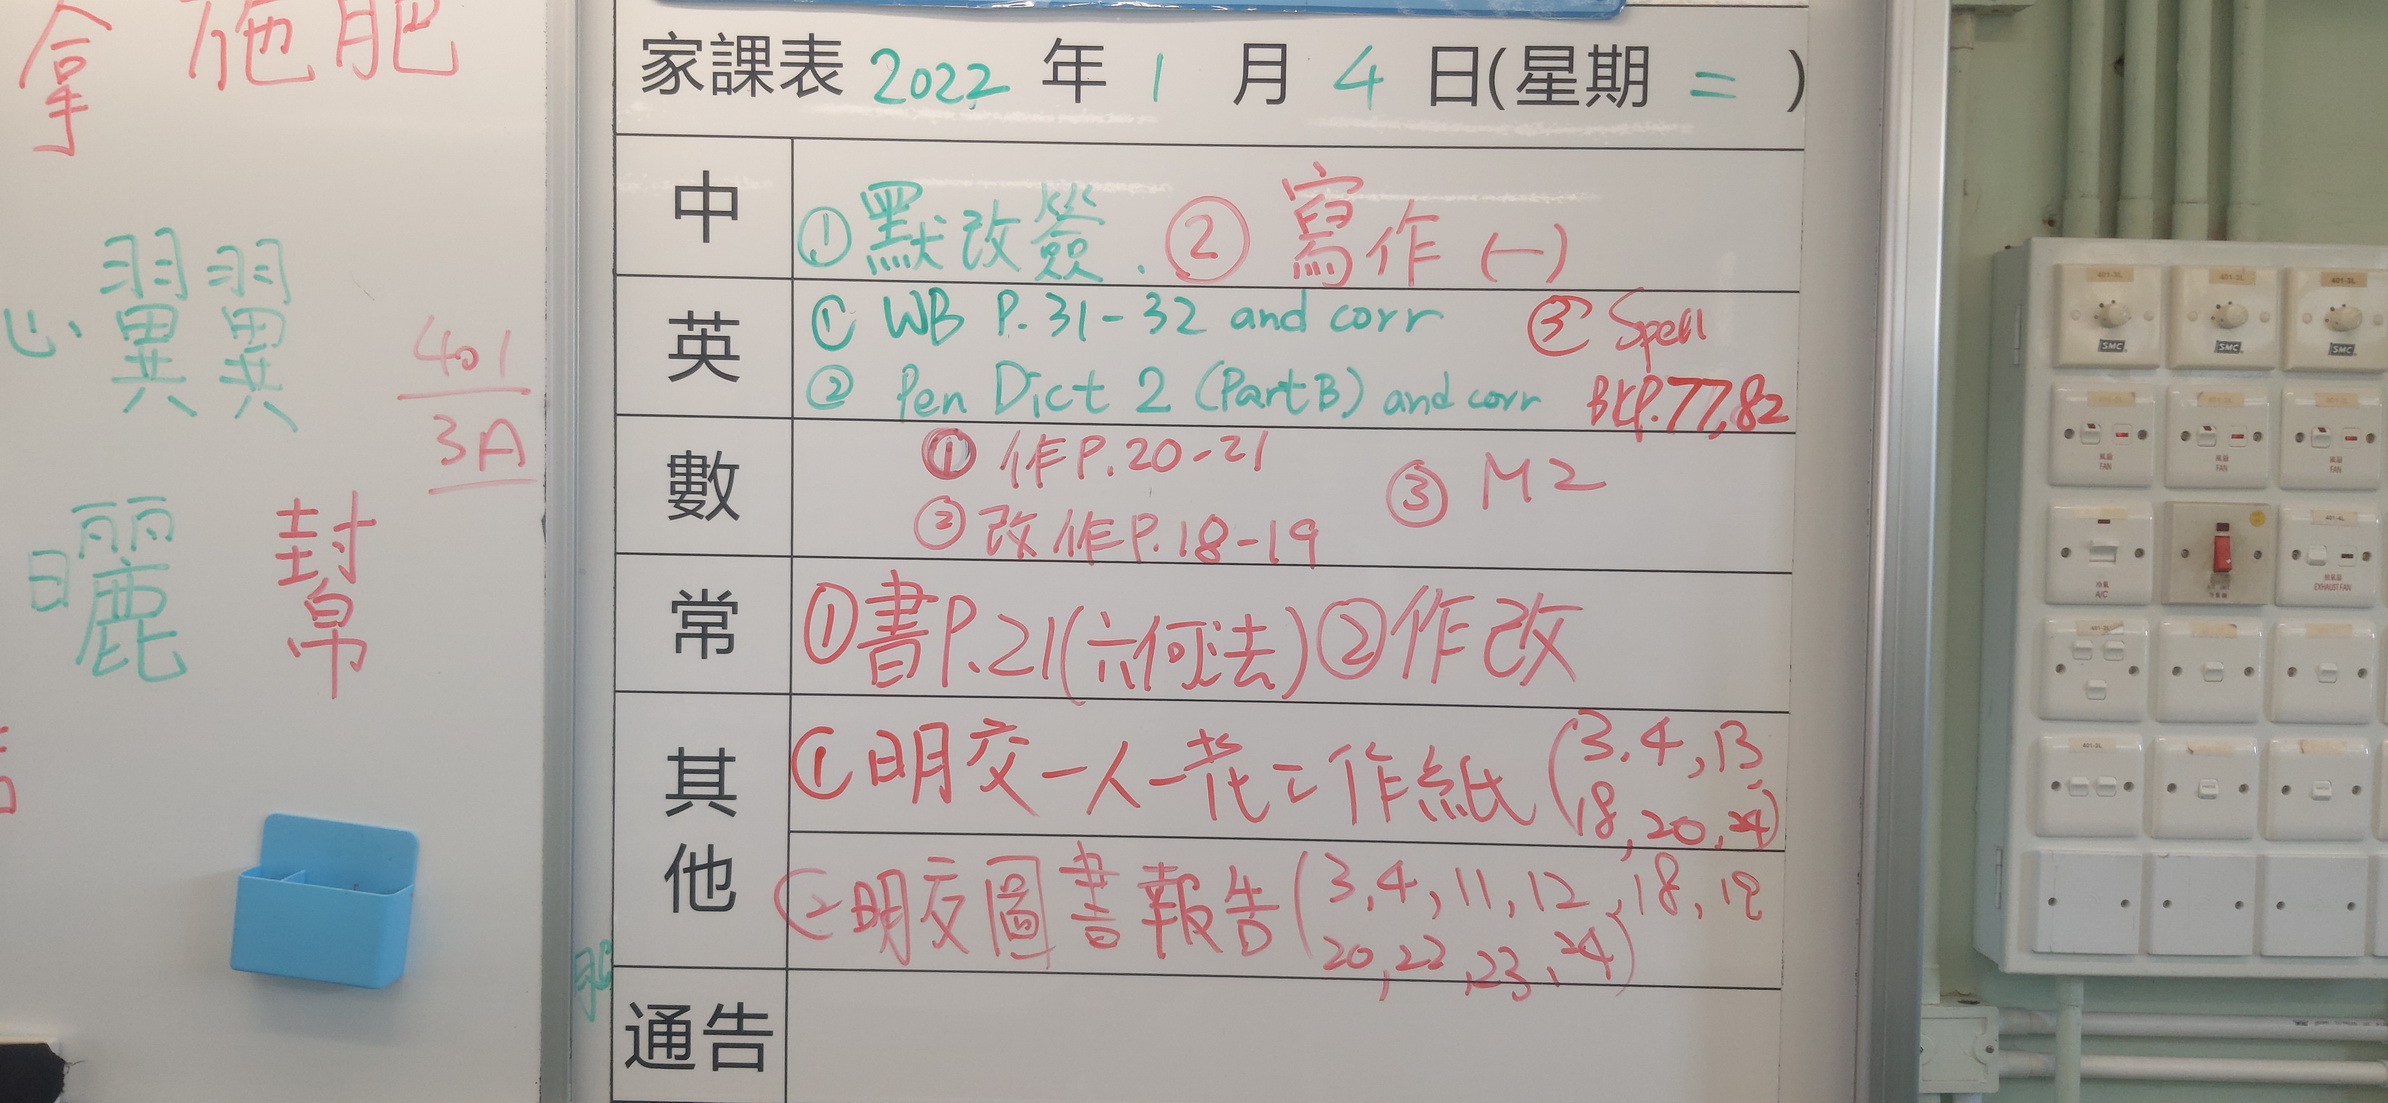 拿 施肥
心 翼翼
401
3A
曬 幫
家課表 2022 年 1 月 4 日(星期 二 )
中
①默改簽. ② 寫作 (一)
英
① WB P.31-32 and corr ③ Spell
② Pen Dict 2 (Part B) and corr BK P.77,82
數
① 作P.20-21
② 改作P.18-19
③ M2
常
①書P.21(六何法)②作改
其他
①明交一人一花工作紙(3,4,13,
18,20,24)
②明交圖書報告(3,4,11,12,18,19
20,22,23,24)
通告
肥
SMC SMC SMC
FAN FAN FAN
A/C EXHAUST FAN